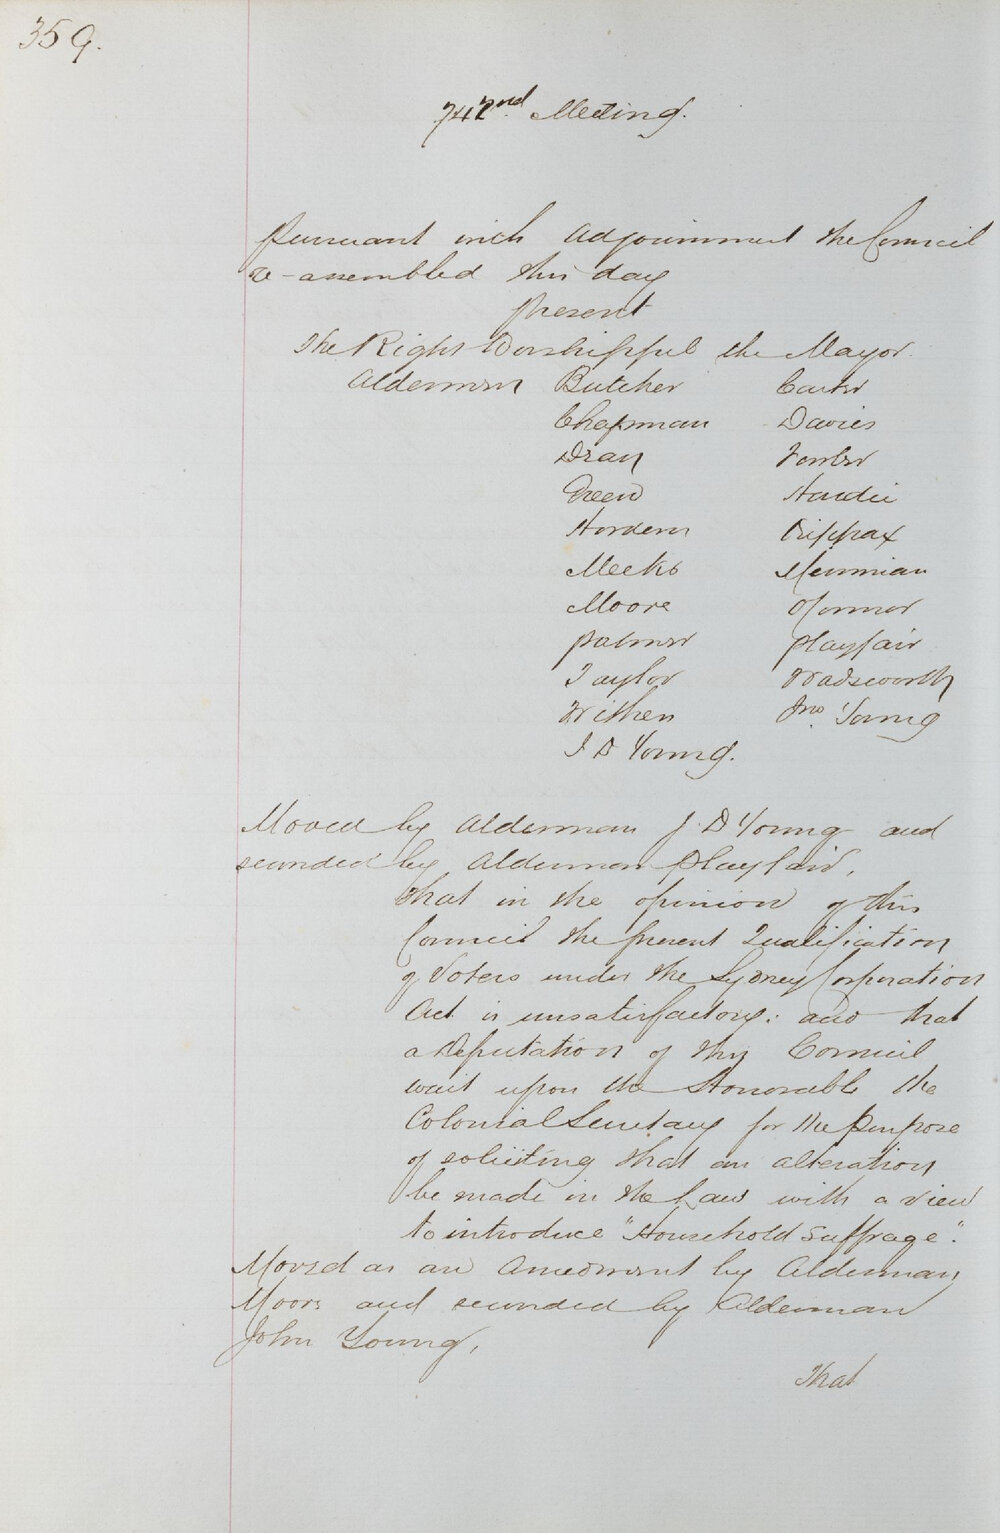 359.
742nd Meeting.
Pursuant with Adjournment the Council
re-assembled this day
present
The Right Worshipful the Mayor.
Aldermen Butcher Carter
Chapman Davies
Dean Fowler
Green Hardie
Hordern Kippax
Meeks Merriman
Moore O'Connor
Palmer Playfair
Taylor Wadsworth
Withers Jno Young
J D Young.
Moved by Alderman J. D Young and
seconded by Alderman Playfair,
that in the opinion of this
Council the present Qualification
of Voters under the Sydney Corporation
Act is unsatisfactory: and that
a Deputation of this Council
wait upon the Honorable the
Colonial Secretary for the Purpose
of soliciting that an alteration
be made in the Law with a view
to introduce "Household Suffrage".
Moved as an Amendment by Alderman
Moore and seconded by Alderman
John Young,
That